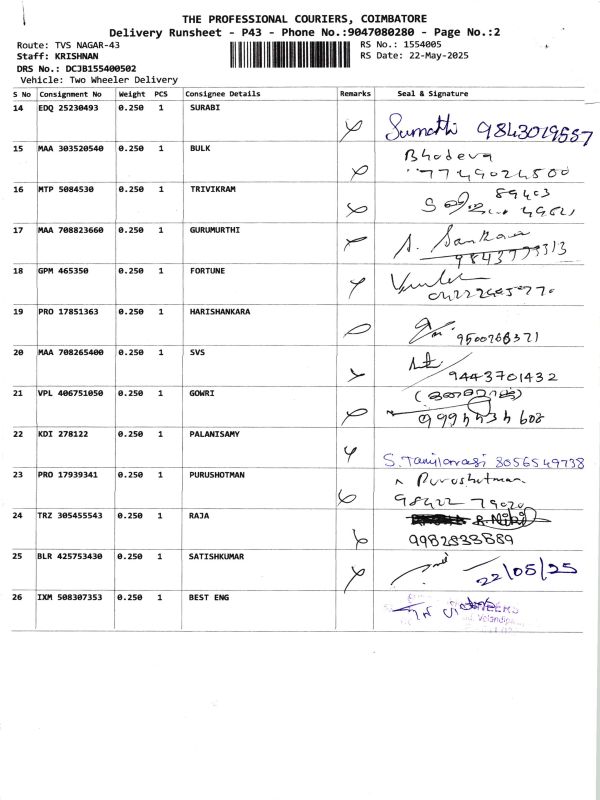 THE PROFESSIONAL COURIERS, COIMBATORE
Delivery Runsheet - P43 - Phone No.:9047080280 - Page No.:2
Route: TVS NAGAR-43 RS No.: 1554005
Staff: KRISHNAN RS Date: 22-May-2025
DRS No.: DCJB155400502
Vehicle: Two Wheeler Delivery
S No Consignment No Weight PCS Consignee Details Remarks Seal & Signature
14 EDQ 25230493 0.250 1 SURABI
Sumathi 9843019557
15 MAA 303520540 0.250 1 BULK
16 MTP 5084530 0.250 1 TRIVIKRAM
17 MAA 708823660 0.250 1 GURUMURTHI
18 GPM 465350 0.250 1 FORTUNE
19 PRO 17851363 0.250 1 HARISHANKARA
20 MAA 708265400 0.250 1 SVS
9443701432
21 VPL 406751050 0.250 1 GOWRI
22 KDI 278122 0.250 1 PALANISAMY
8056549738
23 PRO 17939341 0.250 1 PURUSHOTMAN
Purushotman
98422 79020
24 TRZ 305455543 0.250 1 RAJA
25 BLR 425753430 0.250 1 SATISHKUMAR
22/05/25
26 IXM 508307353 0.250 1 BEST ENG